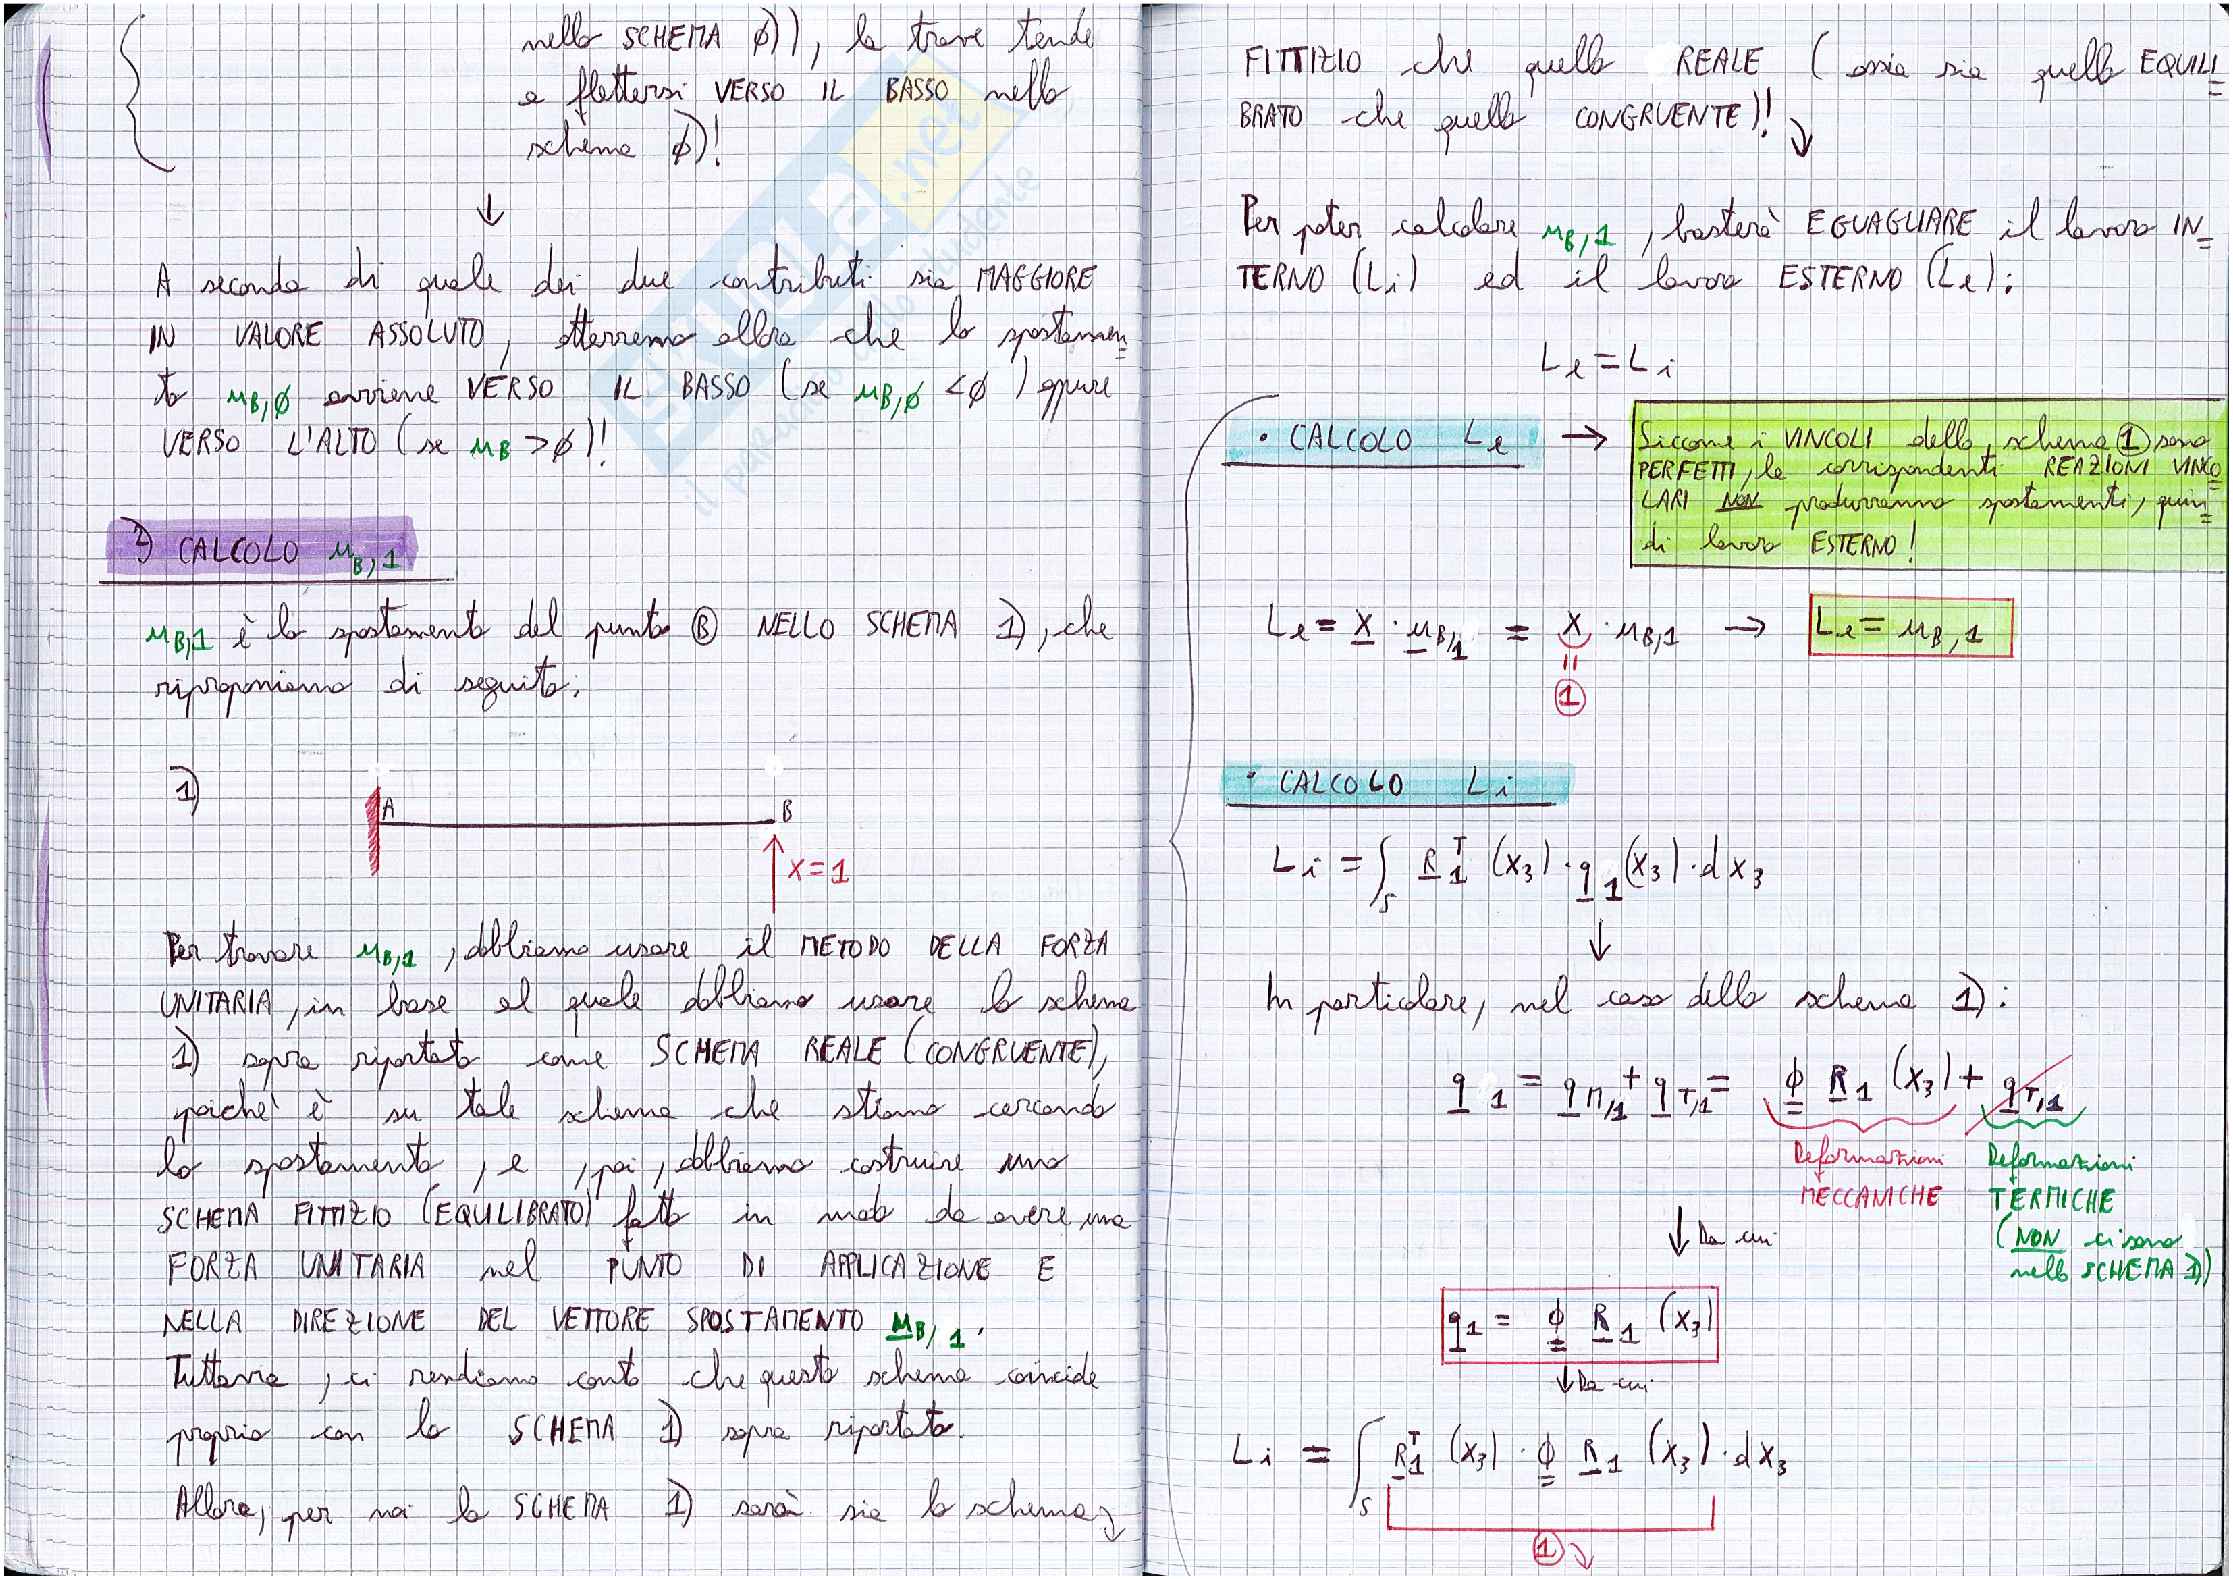 nello SCHEMA ∅)), la trave tende
a flettersi VERSO IL BASSO nello
schema ∅)!
↓
A seconda di quale dei due contributi sia MAGGIORE
IN VALORE ASSOLUTO, otterremo allora che lo spostamen=
to u_B,∅ avviene VERSO IL BASSO (se u_B,∅ <∅) oppure
VERSO L'ALTO (se u_B >∅)!
2) CALCOLO u_B,1
u_B,1 è lo spostamento del punto Ⓑ NELLO SCHEMA 1), che
riproponiamo di seguito:
1)
A
B
X=1
Per trovare u_B,1, dobbiamo usare il METODO DELLA FORZA
UNITARIA, in base al quale dobbiamo usare lo schema
1) sopra riportato come SCHEMA REALE (CONGRUENTE),
poiché è su tale schema che stiamo cercando
lo spostamento, e, poi, dobbiamo costruire uno
SCHEMA FITTIZIO (EQUILIBRATO) fatto in modo da avere una
FORZA UNITARIA nel PUNTO DI APPLICAZIONE E
NELLA DIREZIONE DEL VETTORE SPOSTAMENTO u_B,1.
Tuttavia, ci rendiamo conto che questo schema coincide
proprio con lo SCHEMA 1) sopra riportato.
Allora, per noi lo SCHEMA 1) sarà sia lo schema
FITTIZIO che quello REALE (ossia sia quello EQUILI=
BRATO che quello CONGRUENTE)!
Per poter calcolare u_B,1, basterà EGUAGLIARE il lavoro IN=
TERNO (Li) ed il lavoro ESTERNO (Le):
Le = Li
• CALCOLO Le →
Siccome i VINCOLI dello schema ① sono
PERFETTI, le corrispondenti REAZIONI VINCO=
LARI NON produrranno spostamenti, quin=
di lavoro ESTERNO!
Le = X · u_B,1 = X · u_B,1 → Le = u_B,1
=
①
• CALCOLO Li
Li = ∫_S R_1^T (x_3) · q_1 (x_3) · dx_3
↓
In particolare, nel caso dello schema 1):
q_1 = q_M,1 + q_T,1 = ϕ R_1 (x_3) + q_T,1
Deformazioni
MECCANICHE
Deformazioni
TERMICHE
(NON ci sono
nello SCHEMA 1))
↓ Da cui
q_1 = ϕ R_1 (x_3)
↓ Da cui
Li = ∫_S R_1^T (x_3) · ϕ R_1 (x_3) · dx_3
①
SKUOLA.net
il paradiso dello studente